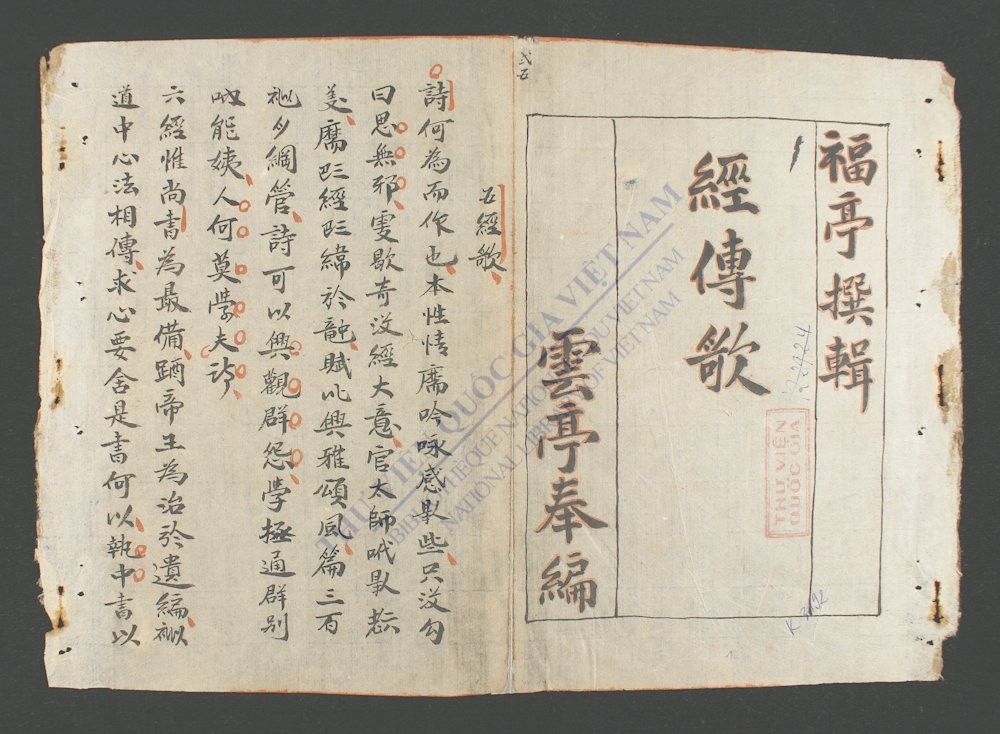 福亭撰輯
經傳歌
雲亭奉編
THƯ VIỆN
QUỐC GIA
K 3192
五經歌
詩何為而作也本性情�nil吟咏感些只沒勾
曰思無邪歇奇沒經大意官太師
美經緯於賦比興雅頌風篇三百
綱管詩可以興觀群怨學拯通群別
能姨人何莫學夫詩
六經惟尚書為最備帝王為治於遺編
道中心法相傳求心要舍是書何以執中書以
THƯ VIỆN QUỐC GIA VIỆT NAM
BIBLIOTHEQUE NATIONALE DU VIETNAM
NATIONAL LIBRARY OF VIETNAM